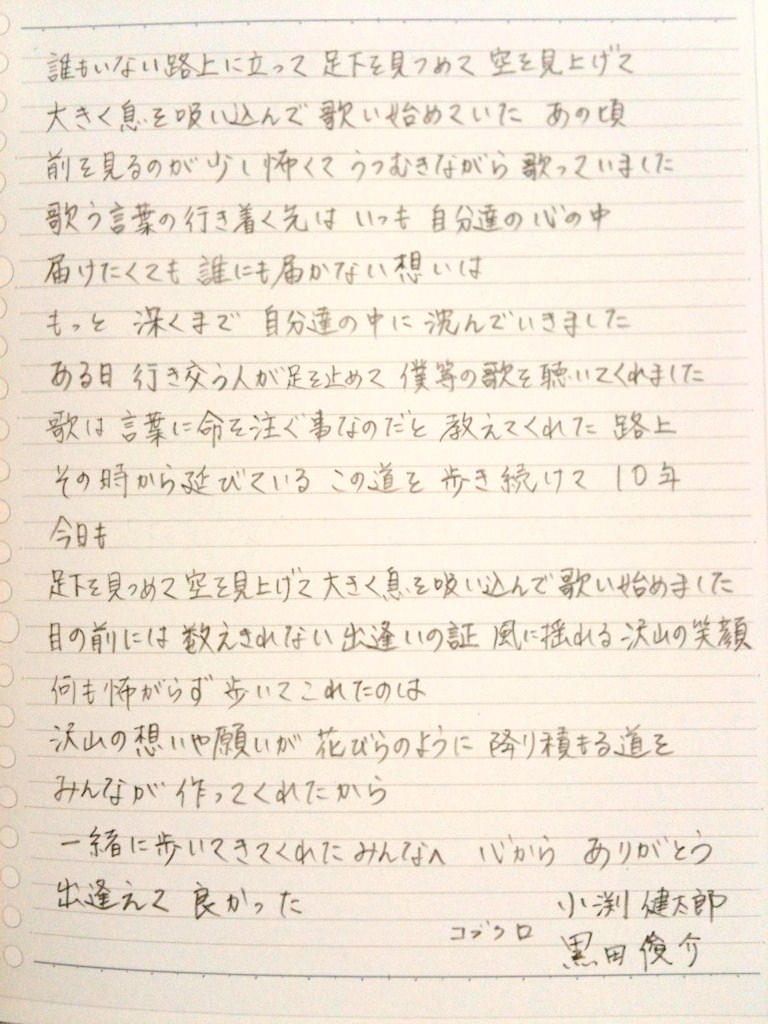 誰もいない路上に立って 足下を見つめて 空を見上げて
大きく息を吸い込んで 歌い始めていた あの頃
前を見るのが少し怖くて うつむきながら 歌っていました
歌う言葉の行き着く先は いつも 自分達の心の中
届けたくても 誰にも届かない想いは
もっと 深くまで 自分達の中に 沈んでいきました
ある日 行き交う人が足を止めて 僕等の歌を聴いてくれました
歌は 言葉に命を注ぐ事なのだと 教えてくれた 路上
その時から延びている この道を 歩き続けて 10年
今日も
足下を見つめて 空を見上げて 大きく息を吸い込んで 歌い始めました
目の前には 数えきれない 出逢いの証 風に揺れる 沢山の笑顔
何も怖がらず 歩いてこれたのは
沢山の想いや願いが 花びらのように 降り積もる道を
みんなが 作ってくれたから
一緒に歩いてきてくれた みんなへ 心から ありがとう
出逢えて 良かった 小渕 健太郎
コブクロ 黒田 俊介